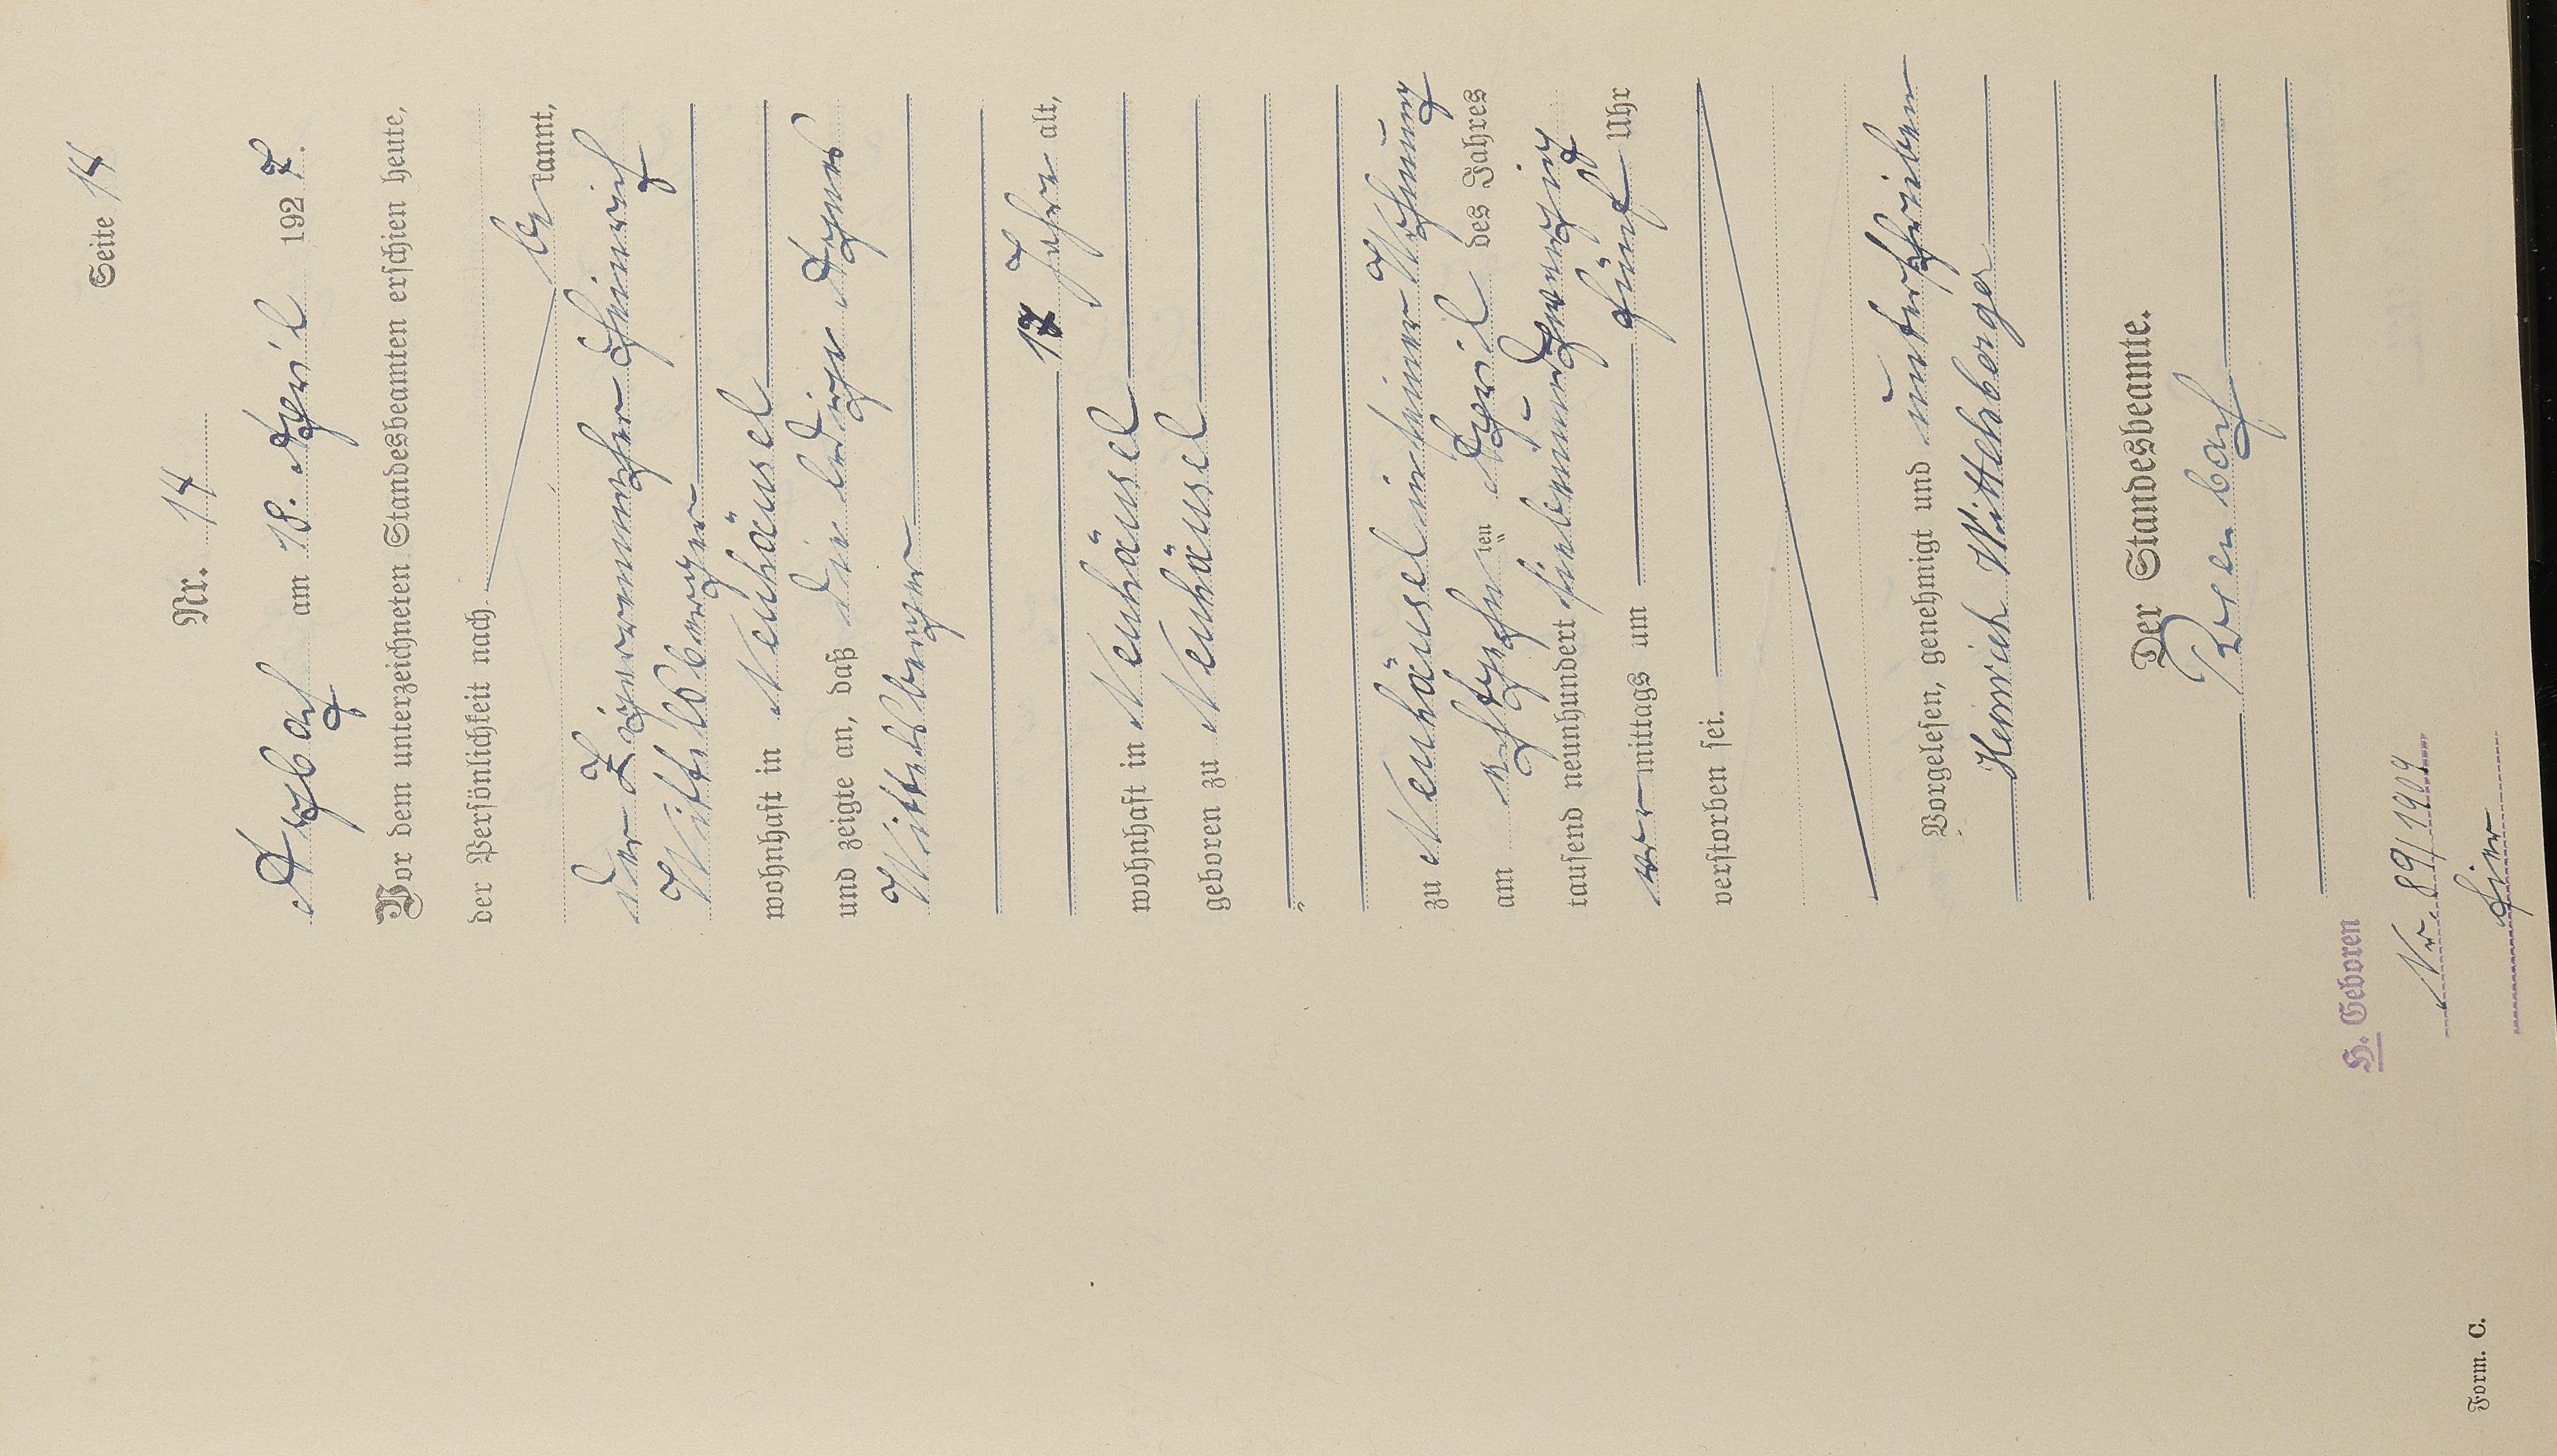 Seite 14
Nr. 14
Arzbach am 18. April 1927.
Vor dem unterzeichneten Standesbeamten erschien heute,
der Persönlichkeit nach
be kannt,
der Heinrich
Wittelsberger
wohnhaft in Neuhäusel
und zeigte an, daß die ledige Agnes
Wittelsberger
17 Jahre alt,
wohnhaft in Neuhäusel
geboren zu Neuhäusel
zu Neuhäusel in seiner Wohnung
am achtzehnten April des Jahres
tausend neunhundert siebenundzwanzig
vormittags um fünf Uhr
verstorben sei.
Vorgelesen, genehmigt und unterschrieben
Heinrich Wittelsberger
Der Standesbeamte.
H. Geboren
Nr. 89/1909
hier
Form. C.